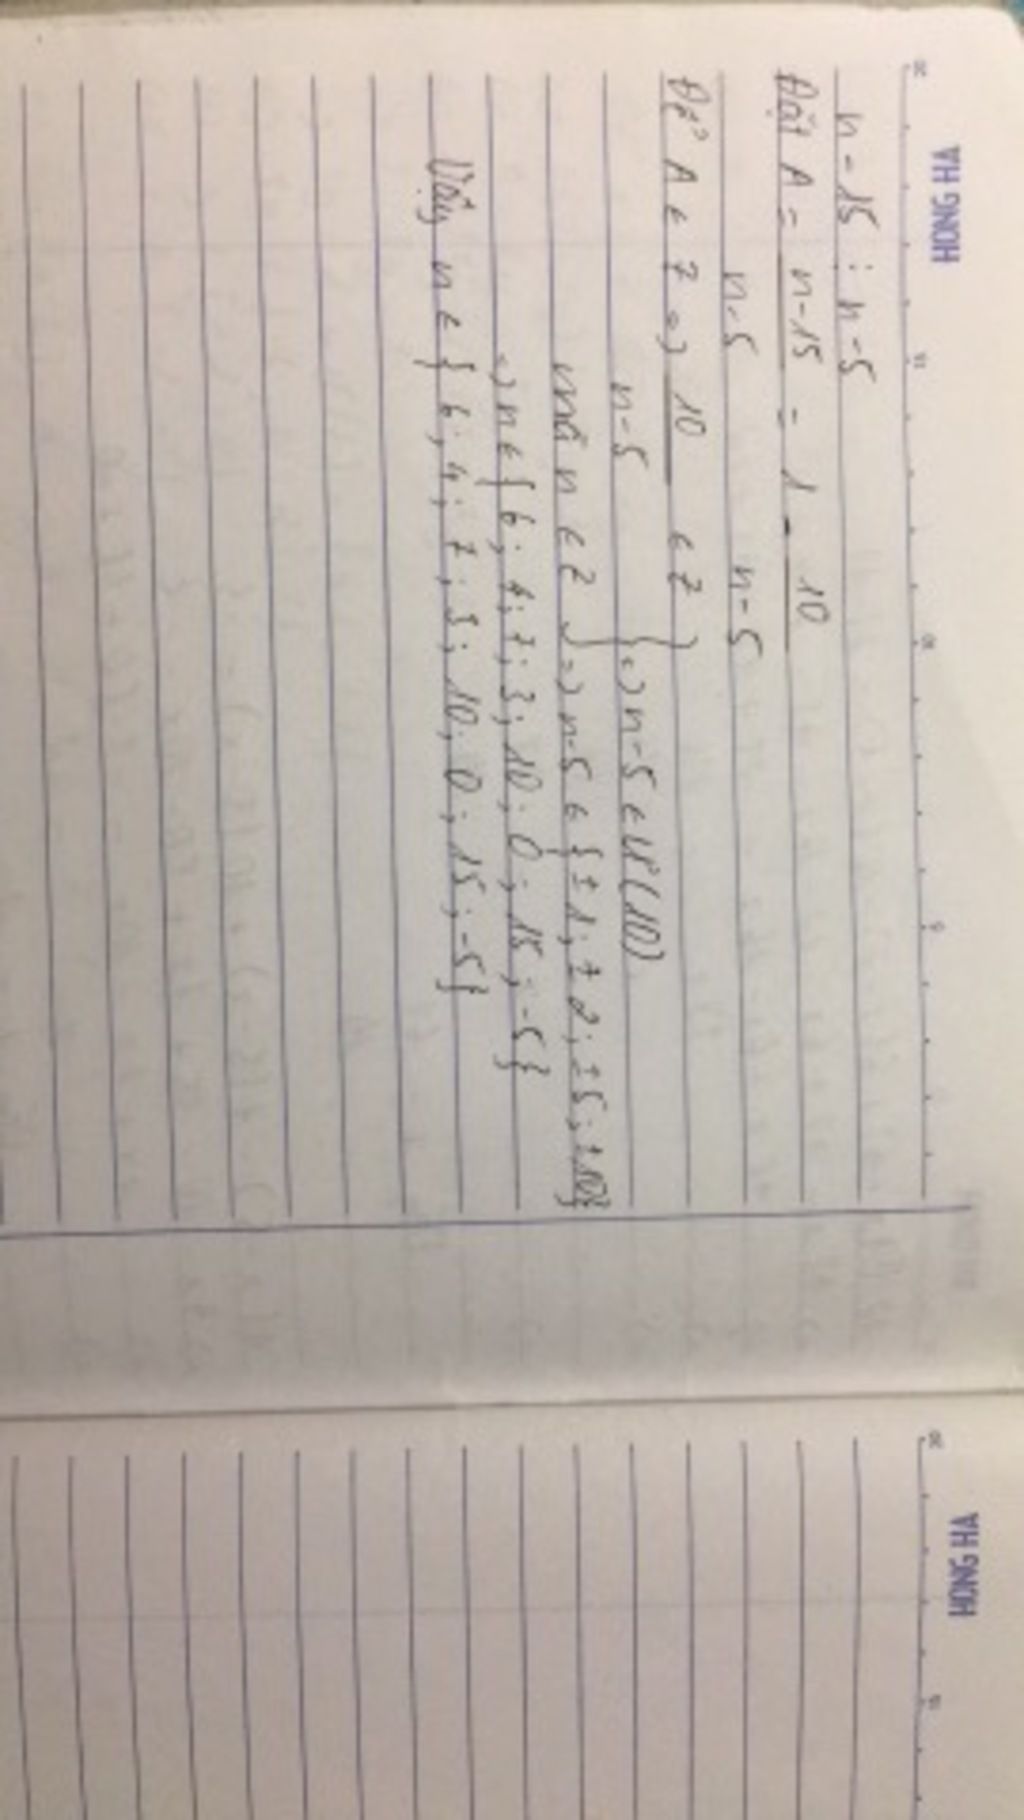 HONG HA
n - 15 ⋮ n - 5
Đặt A = n-15 = 1 - 10
n-5 n-5
Để A ∈ Z => 10 ∈ Z
n-5 } => n-5 ∈ Ư(10)
mà n ∈ Z } => n-5 ∈ { ±1; ±2; ±5; ±10}
=> n ∈ { 6; 4; 7; 3; 10; 0; 15; -5}
Vậy n ∈ { 6; 4; 7; 3; 10; 0; 15; -5}
HONG HA